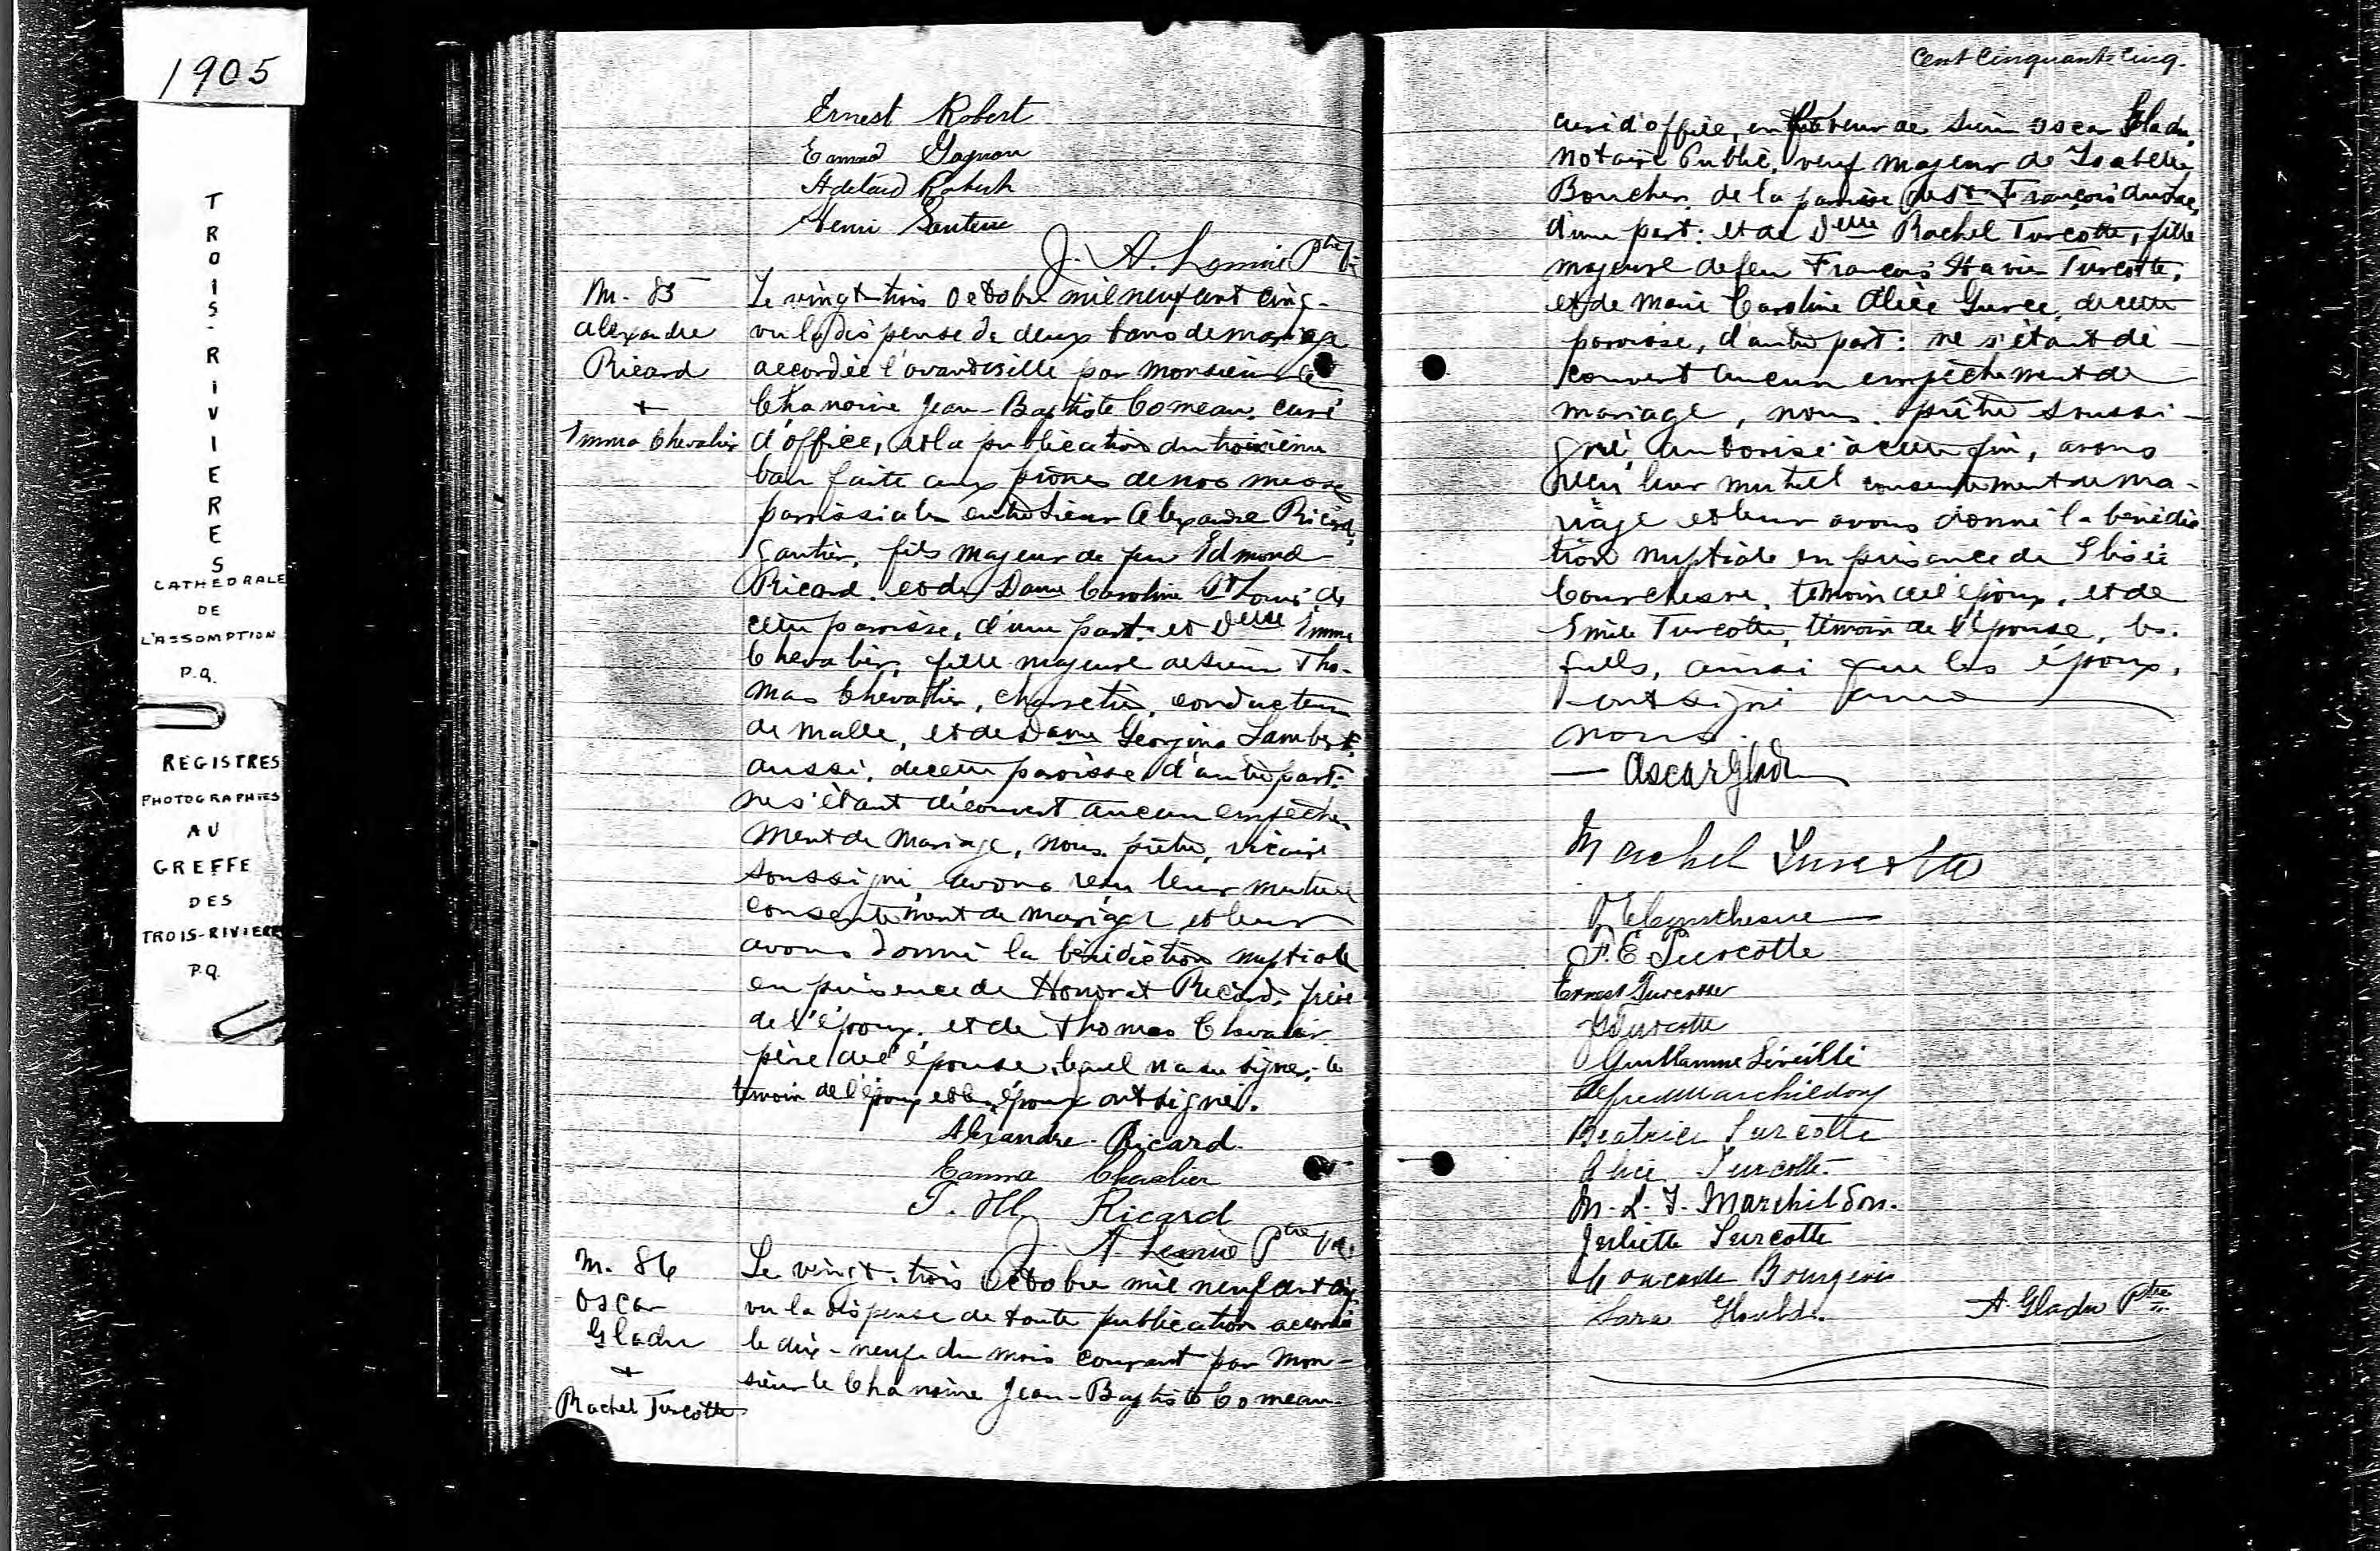 1905
TROIS-RIVIERES
CATHÉDRALE
DE
L'ASSOMPTION
P.Q.
REGISTRES
PHOTOGRAPHIES
AU
GREFFE
DES
TROIS-RIVIERES
P.Q.
Ernest Robert
Gagnon
Henri
J. A. Ptre
M. 85
Alexandre
Ricard
+
Emma Chevalier
Le vingt-trois Octobre mil neuf cent cinq
vu la dispense de deux bans de mariage
accordée l'avant-veille par monsieur le
Chanoine Jean-Baptiste Comeau, curé
d'office, et la publication du troisième
ban faite aux prônes de nos messes
paroissiales entre Sieur Alexandre Ricard,
gantier, fils majeur de feu Edmond
Ricard et de Dame Caroline St Louis, de
cette paroisse, d'une part; et Delle Emma
Chevalier, fille majeure de Sieur Tho-
mas Chevalier, charretier, conducteur
de malle, et de Dame Georgina Lambert,
aussi de cette paroisse d'autre part:
ne s'étant découvert aucun empêche-
ment de mariage, nous, prêtre, vicaire
soussigné, avons reçu leur mutuel
consentement de mariage et leur
avons donné la bénédiction nuptiale
en présence de Honorat Ricard, frère
de l'époux, et de Thomas Chevalier
père de l'épouse, lequel n'a su signer; le
témoin de l'époux et les époux ont signé.
Alexandre Ricard
Emma Chevalier
Ricard
Ptre Vic.
M. 86
Oscar
Gladu
+
Rachel Turcotte
Le vingt-trois Octobre mil neuf cent cinq
vu la dispense de toute publication accordée
le dix-neuf du mois courant par Mon-
sieur le Chanoine Jean-Baptiste Comeau
Cent cinquante-cinq.
curé d'office, en faveur de Sieur Oscar Gladu,
notaire Public, veuf majeur de Isabelle
Boucher, de la paroisse de St François du Lac,
d'une part: et de Delle Rachel Turcotte, fille
majeure de feu François Xavier Turcotte,
et de Marie Caroline Alice de cette
paroisse, d'autre part: ne s'étant dé-
couvert aucun empêchement de
mariage, nous, prêtre soussi-
gné, autorisé à cette fin, avons
reçu leur mutuel consentement de ma-
riage et leur avons donné la bénédic-
tion nuptiale en présence de Elisée
Courchesne, témoin de l'époux, et de
Emile Turcotte, témoin de l'épouse, les-
quels, ainsi que les époux,
ont signé avec
nous.
Oscar Gladu
Rachel Turcotte
Courchesne
P. E Turcotte
Ernest Turcotte
Turcotte
Guillaume Léveillé
Alfred Marchildon
Beatrice Turcotte
Alice Turcotte
M. L. J. Marchildon.
Juliette Turcotte
Bourgeois
Sara
A. Gladu Ptre